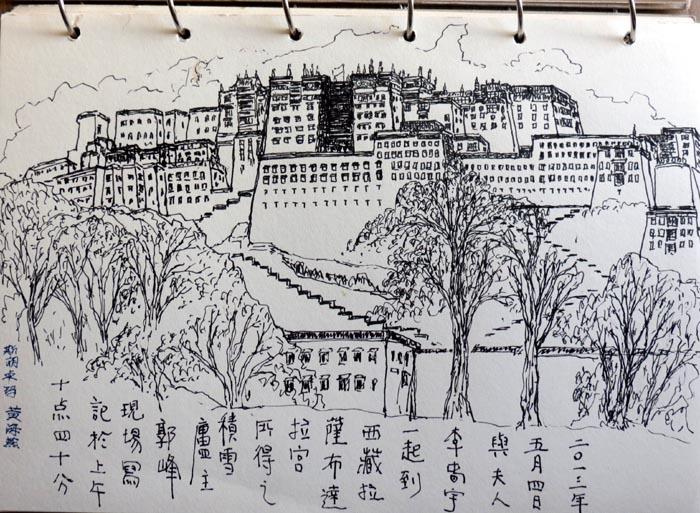 二〇一三年
五月四日
與夫人
李宇
一起到
西藏拉
薩布達
拉宫
所得之
積雪
廬主
郭峰
現場寫
記於上午
十点四十分